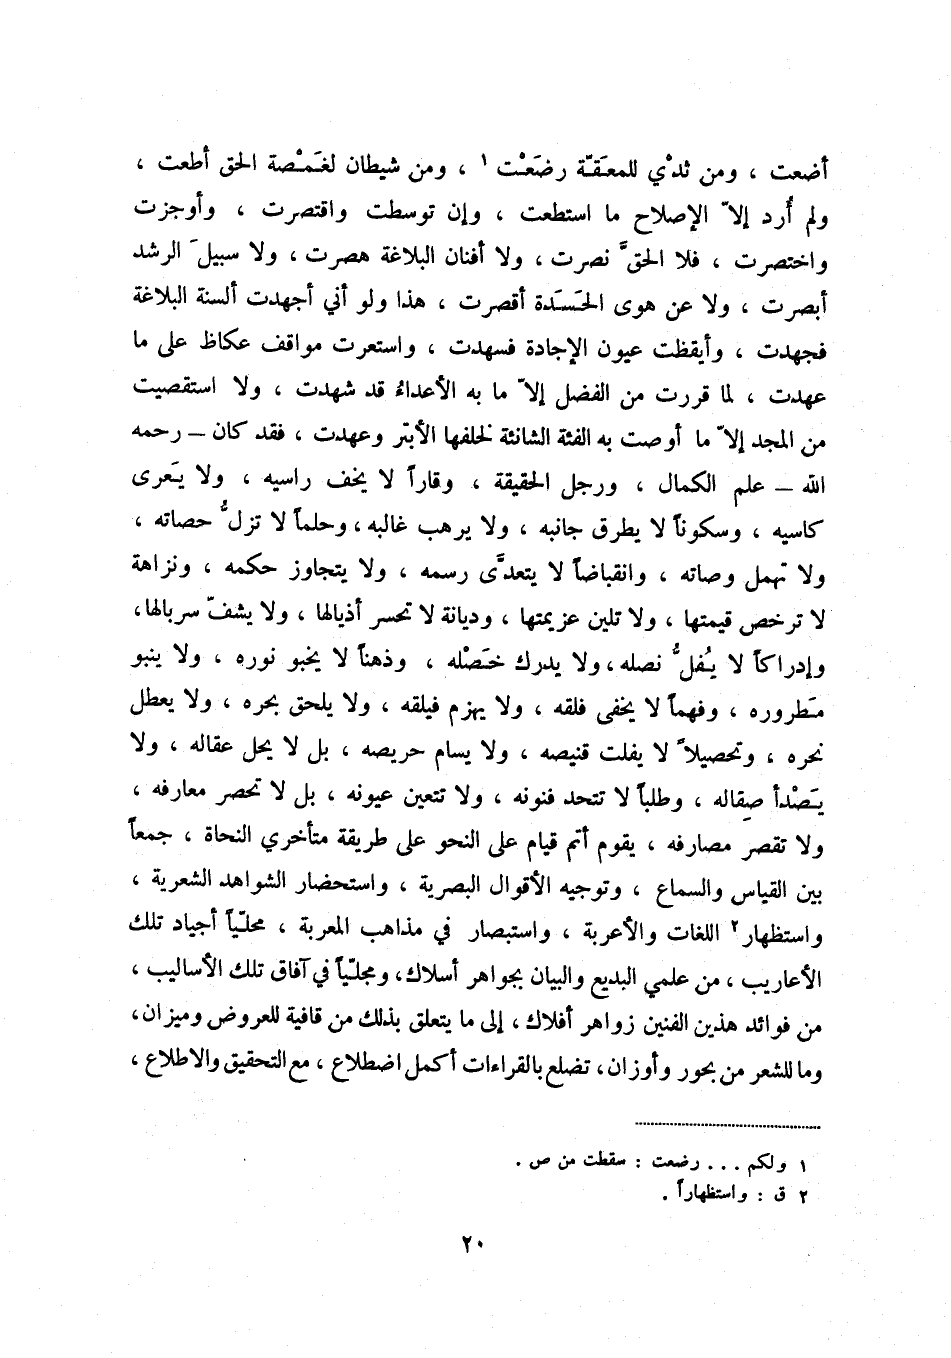 أضعت ، ومن ثدْي للمعَقـّة رضَعْت ١ ، ومن شيطان لغَمْصة الحق أطعت ،
ولم أُرد إلاّ الإصلاح ما استطعت ، وإن توسطت واقتصرت ، وأوجزت
واختصرت ، فلا الحقَّ نصرت ، ولا أفنان البلاغة هصرت ، ولا سبيلَ الرشد
أبصرت ، ولا عن هوى الحَسَدة أقصرت ، هذا ولو أني أجهدت ألسنة البلاغة
فجهدت ، وأيقظت عيون الإجادة فسهدت ، واستعرت مواقف عكاظ على ما
عهدت ، لما قررت من الفضل إلاّ ما به الأعداءُ قد شهدت ، ولا استقصيت
من المجد إلاّ ما أوصت به الفئة الشانئة لخلفها الأبتر وعهدت ، فقد كان – رحمه
الله – علم الكمال ، ورجل الحقيقة ، وقاراً لا يخف راسيه ، ولا يَعرى
كاسيه ، وسكوناً لا يطرق جانبه ، ولا يرهب غالبه ، وحلماً لا تزلُّ حصاته ،
ولا تهمل وصاته ، وانقباضاً لا يتعدَّى رسمه ، ولا يتجاوز حكمه ، ونزاهة
لا ترخص قيمتها ، ولا تلين عزيمتها ، وديانة لا تحسر أذيالها ، ولا يشفّ سربالها،
وإدراكاً لا يُفلُّ نصله ، ولا يدرك خَصْله ، وذهناً لا يخبو نوره ، ولا ينبو
مَطروره ، وفهماً لا يخفى فلقه ، ولا يهزم فيلقه ، ولا يلحق بحره ، ولا يعطل
نحره ، وتحصيلاً لا يفلت قنيصه ، ولا يسام حريصه ، بل لا يحل عقاله ، ولا
يَصْدأ صِقاله ، وطلباً لا تتحد فنونه ، ولا تتعين عيونه ، بل لا تحصر معارفه ،
ولا تقصر مصارفه ، يقوم أتم قيام على النحو على طريقة متأخري النحاة ، جمعاً
بين القياس والسماع ، وتوجيه الأقوال البصرية ، واستحضار الشواهد الشعرية ،
واستظهار ٢ اللغات والأعربة ، واستبصار في مذاهب المعربة ، محلـّياً أجياد تلك
الأعاريب ، من علمي البديع والبيان بجواهر أسلاك، ومجلـّياً في آفاق تلك الأساليب ،
من فوائد هذين الفنين زواهر أفلاك ، إلى ما يتعلق بذلك من قافية للعروض وميزان ،
وما للشعر من بحور وأوزان ، تضلع بالقراءات أكمل اضطلاع ، مع التحقيق والاطلاع ،
١ ولكم . . . رضعت : سقطت من ص .
٢ ق : واستظهاراً .
٢٠